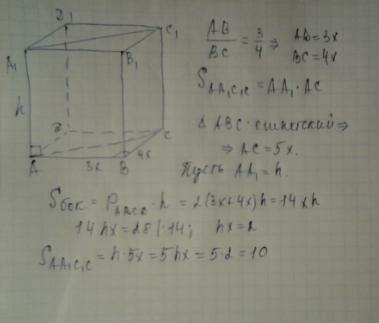 D₁
C₁
A₁
B₁
h
D
C
A
3x
B
4x
AB/BC = 3/4 ⇒ AB = 3x
BC = 4x
S_AA₁C₁C = AA₁ · AC
Δ ABC - египетский ⇒
⇒ AC = 5x.
Пусть AA₁ = h.
Sбок = P_ABCD · h = 2(3x+4x)h = 14xh
14hx = 28 | :14; hx = 2
S_AA₁C₁C = h·5x = 5hx = 5·2 = 10